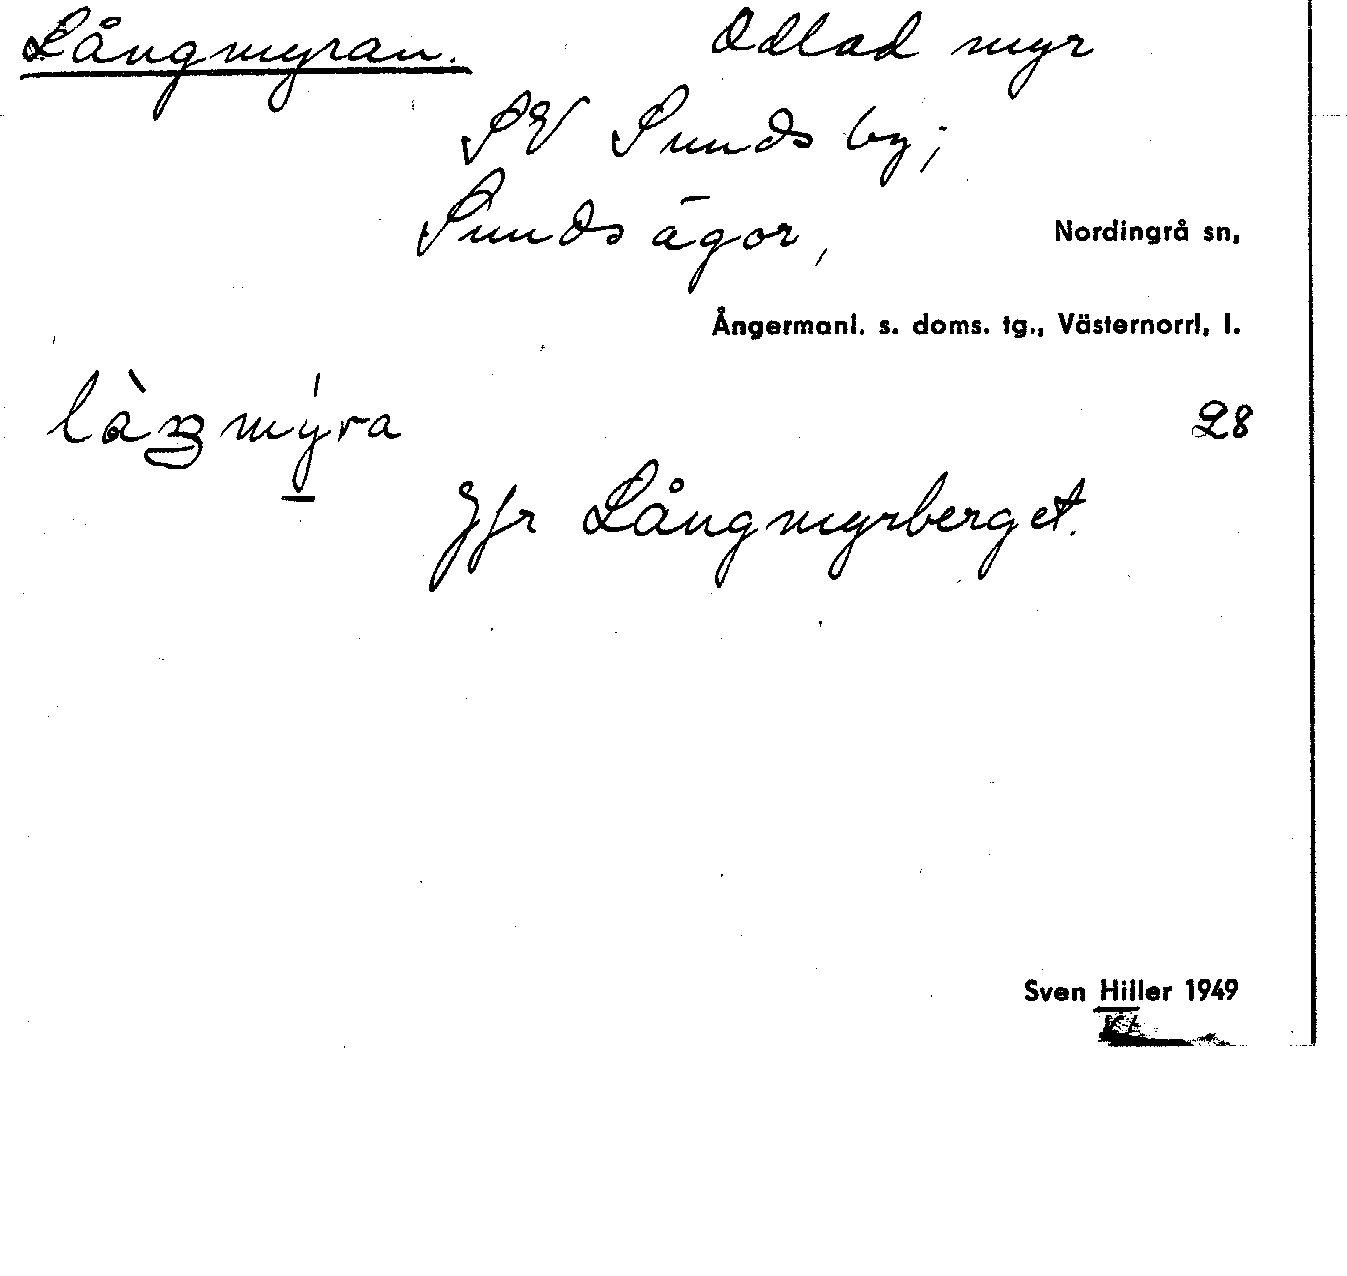 Långmyran. Odlad myr
SV Sunds by;
Sunds ägor, Nordingrå sn,
Ångermanl. s. doms. tg., Västernorrl. l.
28
Jfr Långmyrberget.
Sven Hiller 1949